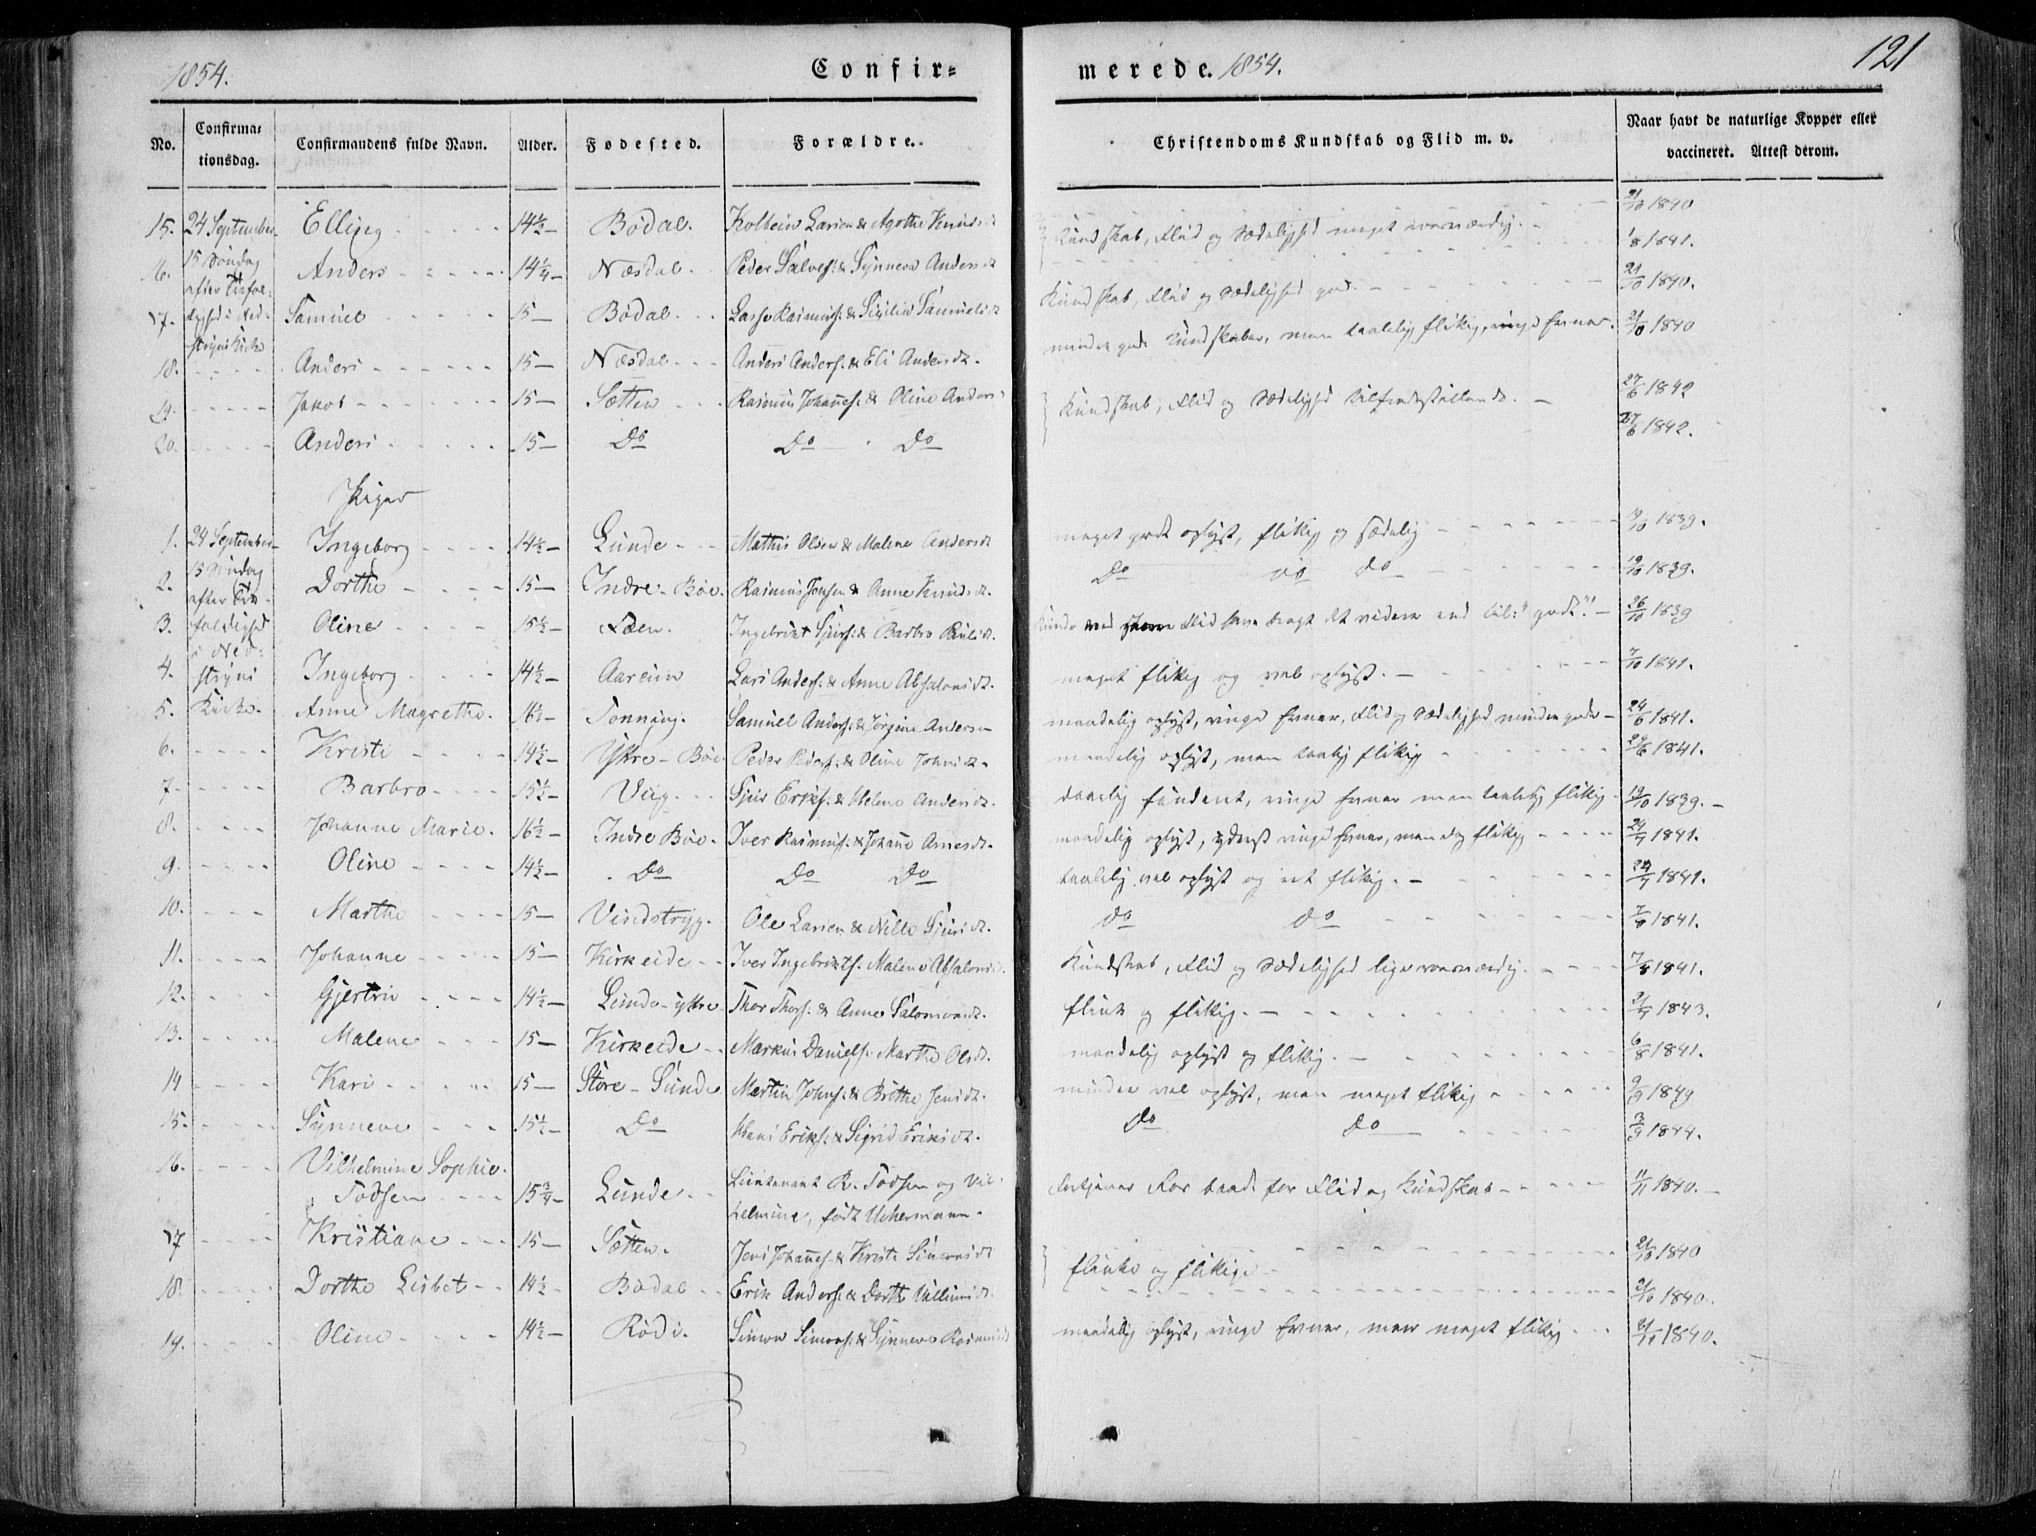 1854. Confir= merede. 1854. 121
No. Confirmationsdag. Confirmandens fulde Navn. Alder. Fødested. Forældre. Christendoms Kundskab og Flid m. v. Naar havt de naturlige Kopper eller vaccineret. Attest derom.
15. 24 September Elling 14½ Bødal. Kolbein Larsen & Agathe Knudsd 21/10 1840
Kundskab, Flid og Sædelighed meget roesværdig.
16. 15 Søndag Anders 14¼ Næsdal. Peder Salves: & Synneva Andersdt 1/8 1841.
efter Trefol=
17. dighed i Ned= Samuel 15 Bødal Lasse Rasmuss: & Sicilia Samuelsdt Kundskab, Flid og Sædelighed god. 21/10 1840.
stryns Kirke
18. Anders 15 Næsdal Anders Anders: & Eli Andersdt. mindre gode Kundskaber, men taalelig flittig, ringe Evner. 21/10 1840
19. Jakob 15 Sætten Rasmus Johannes: & Oline Andersd 27/6 1842
Kundskab, Flid og Sædelighed tilfredsstillende.
20. Anders 15 Do Do Do 27/6 1842.
Piger
1. 24 September Ingeborg 14½ Lunde Mathis Olsen & Malene Andersdt meget godt oplyst, flittig og sædelig 9/10 1839.
2. 15 Søndag Dorthe 15 Indre-Böe. Rasmus Jensen & Anne Knudsdt. Do Do Do 19/10 1839.
efter Tre=
3. foldighed Oline 15½ Fæen. Ingebrigt Sjurs: & Barbro Poulsdt. kunde ved Flid have bragt det videre end til: "godt." 26/10 1839
i Ned=
4. stryns Ingeborg 14½ Aareim Lars Anders: & Anne Absalonsdt. meget flittig og vel oplyst. 7/10 1841.
5. Kirke. Anne Magrethe. 16½ Tonning. Samuel Anders: & Jørgine Anders maadelig oplyst, ringe Evner, Flid og Sædelighed mindre gode 24/6 1841.
6. Kristi 14½ Yttre-Böe Peder Peders: & Oline Johnsdt. maadelig oplyst, men taalig flittig 24/6 1841.
7. Barbro 15½ Vug. Sjur Eriks: & Helene Andersdt. daarlig funderet, ringe Evner men taalelig flittig 19/10 1839.
8. Johanne Marie. 16½ Indre Böe. Iver Rasmuss: & Johane Arnesdt. maadelig oplyst, yderst ringe Evner, men dog flittig 24/7 1841.
9. Oline 14½ Do Do Do taalelig vel oplyst og ret flittig. 24/7 1841.
10. Marthe 15 Vindstryg. Ole Larsen & Nille Sjursdt. do do 7/8 1841.
11. Johanne 15 Kirkeide Iver Ingebrigts: Malene Absalonsd. Kundskab, Flid og Sædelighed lige roesværdig. 7/8 1841.
12. Gjertrü 14½ Lunde-yttre Thor Thors: & Anne Salomonsdt. flink og flittig. 21/7 1843.
13. Malene 15 Kirkeide Markus Daniels: Marthe Olsdt. maadelig oplyst og flittig. 6/8 1841.
14 Kari 15 Störe-Sunde Martin Johns: & Brithe Jensdt. mindre vel oplyst, men meget flittig 9/9 1849
15. Synneve 15½ Do Hans Eriks: & Sigrid Eriksdt. Do Do 3/9 1844.
16. Vilhelmine Sophie Lieutenant R. Todsen og Vil=
Todsen 15¾ Lunde helmine, født Uckermann. fortjener Ros baade for Flid og Kundskab 11/11 1840.
17 Kristiane 15 Sætten. Jens Johannes: & Kristi Simonsdt 21/10 1840
flinke og flittige
18. Dorthe Lisbet 14½ Bødal Erik Anders: & Dorthe Villumsdt. 21/10 1840.
19. Oline 14½ Rödi. Simon Simons: & Synneve Rasmusd maadelig oplyst, ringe Evner, men meget flittig 21/11 1840.